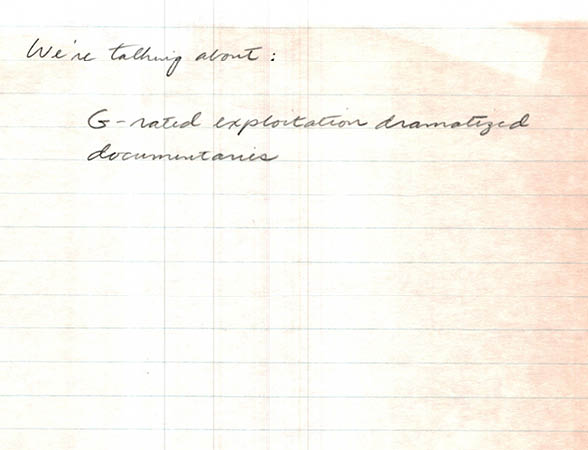 We're talking about:
G-rated exploitation dramatized
documentaries